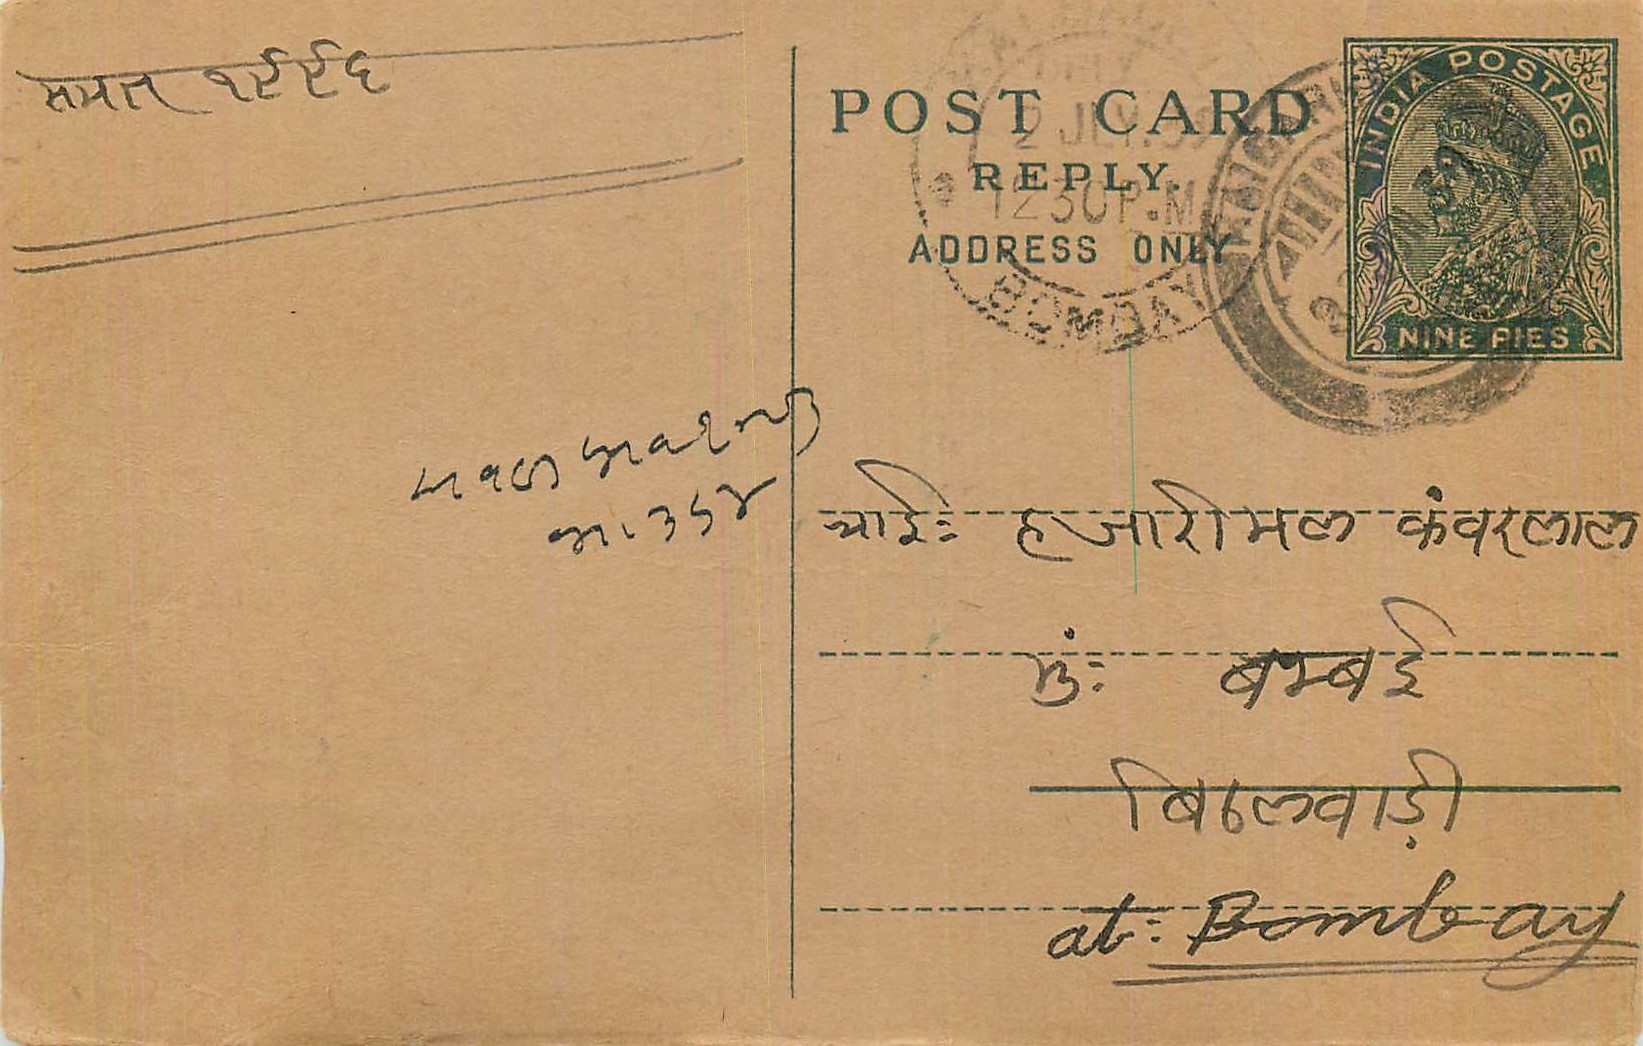 समत १९९६
POST CARD
REPLY.
ADDRESS ONLY
INDIA POSTAGE
NINE PIES
2 JLY. 39
12 30 P.M
BOMBAY
भाई: हजारीमल कंवरलाल
मु: बम्बई
बिठलवाड़ी
at: Bombay